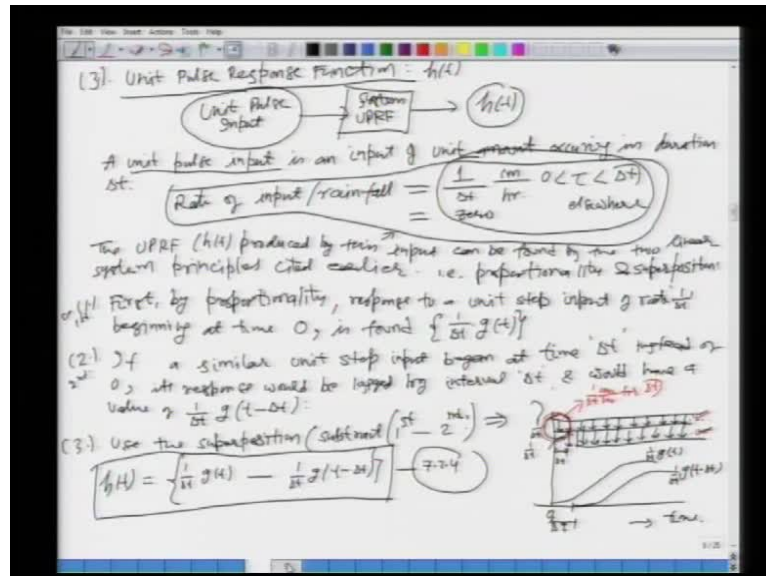 File Edit View Insert Actions Tools Help
(3). Unit Pulse Response Function : h(t)
Unit Pulse Input → System UPRF → h(t)
A unit pulse input is an input of unit amount occuring in duration
Δt.
Rate of input/rainfall = 1/Δt cm/hr 0<τ<Δt
= zero elsewhere
The UPRF (h(t)) produced by this input can be found by the two linear
system principles cited earlier. i.e. proportionality & superposition
(1) First, by proportionality, response to a unit step input of rate 1/Δt
beginning at time 0, is found {1/Δt g(t)}
(2.) If a similar unit step input began at time 'Δt' instead of
2nd 0, its response would be lagged by interval 'Δt' & would have a
value of 1/Δt g(t-Δt).
(3.) Use the superposition (subtract (1st - 2nd.) ⇒ ?
h(t) = {1/Δt g(t) - 1/Δt g(t-Δt)} — 7.2.4
1/Δt
1/Δt g(t)
1/Δt g(t-Δt)
0
Δt
→ time.